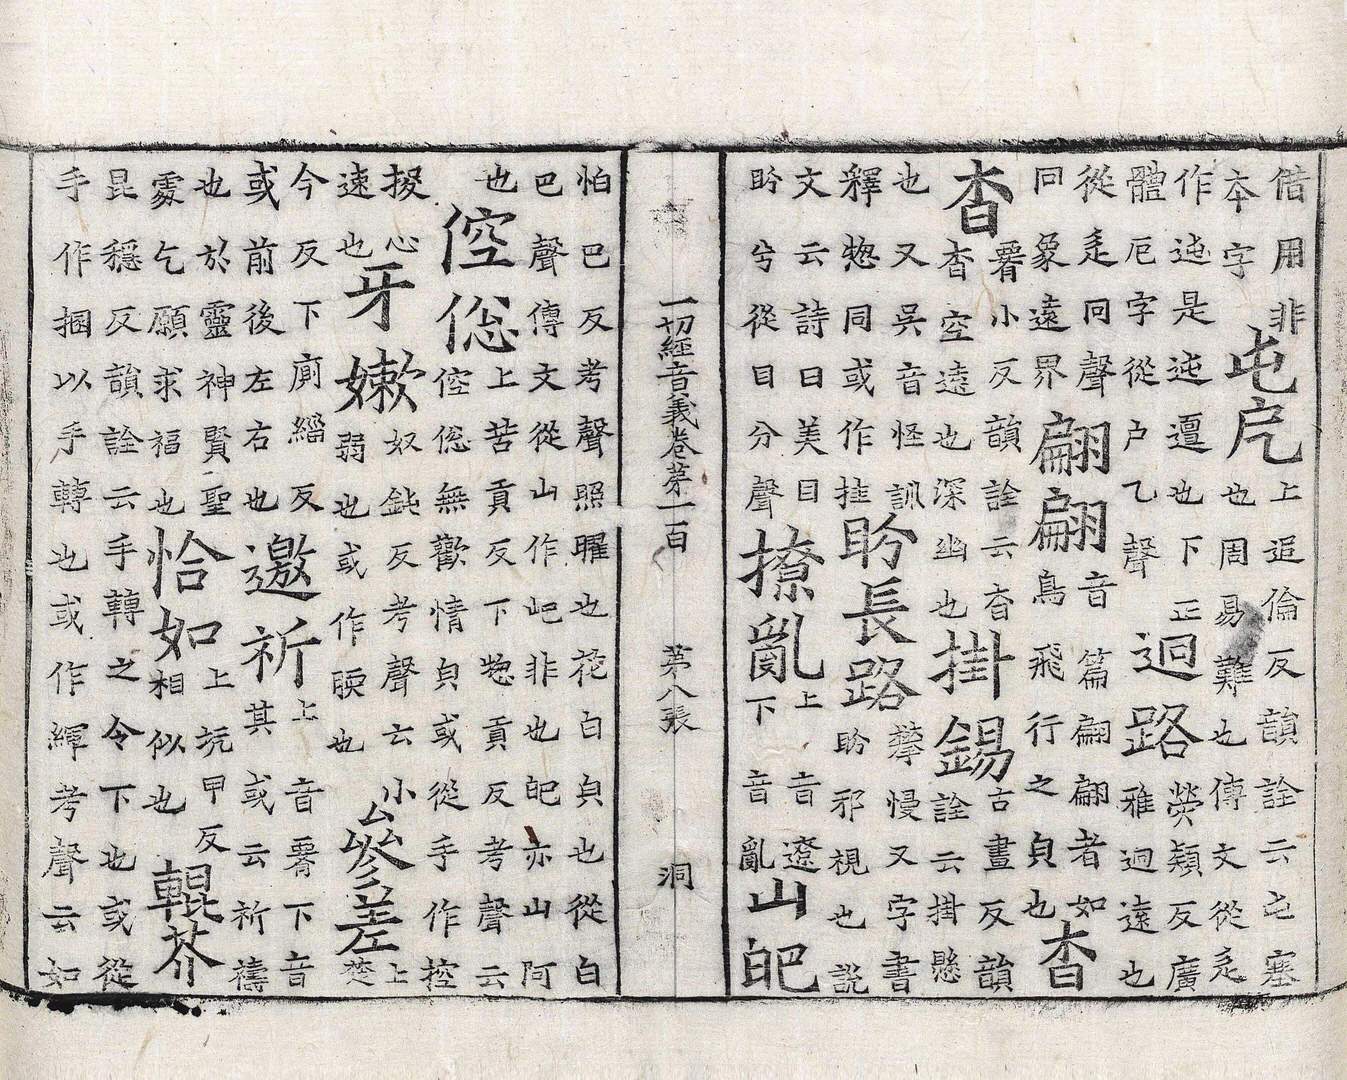 借用非
本字
屯戹
上追倫反韻詮云屯塞
也周易難也傳文從辵
作迍是迍邅也下正
體厄字從戶乙聲
迥路
熒穎反廣
雅迥遠也
從辵冋聲
冋象遠界
翩翩
音篇翩翩者如
鳥飛行之皃也
杳
杳
小反韻詮云杳
杳空遠也深幽也
掛錫
古畫反韻
詮云掛懸
也又吳音怪訓
釋惣同或作挂
盻長路
攀慢又字書
盻邪視也説
文云詩曰美目
盻兮從目分聲
撩亂
上音遼
下音亂
山皅
一切經音義卷苐一百 第八張 洞
怕巴反考聲照曜也花白皃也從白
巴聲傳文從山作岊非也皅亦山阿
也
倥偬
上苦貢反下惣貢反考聲云
倥偬無歡情皃或從手作控
掇心
速也
牙嫰
奴鈍反考聲云小
弱也或作腝也
參差
上
楚
今反下廁緇反
或前後左右也
邀祈
上音霄下音
其或云祈禱
也於靈神賢聖
處乞願求福也
恰如
上坑甲反
相似也
輥芥
昆穩反韻詮云手轉之令下也或從
手作掍以手轉也或作緷考聲云如